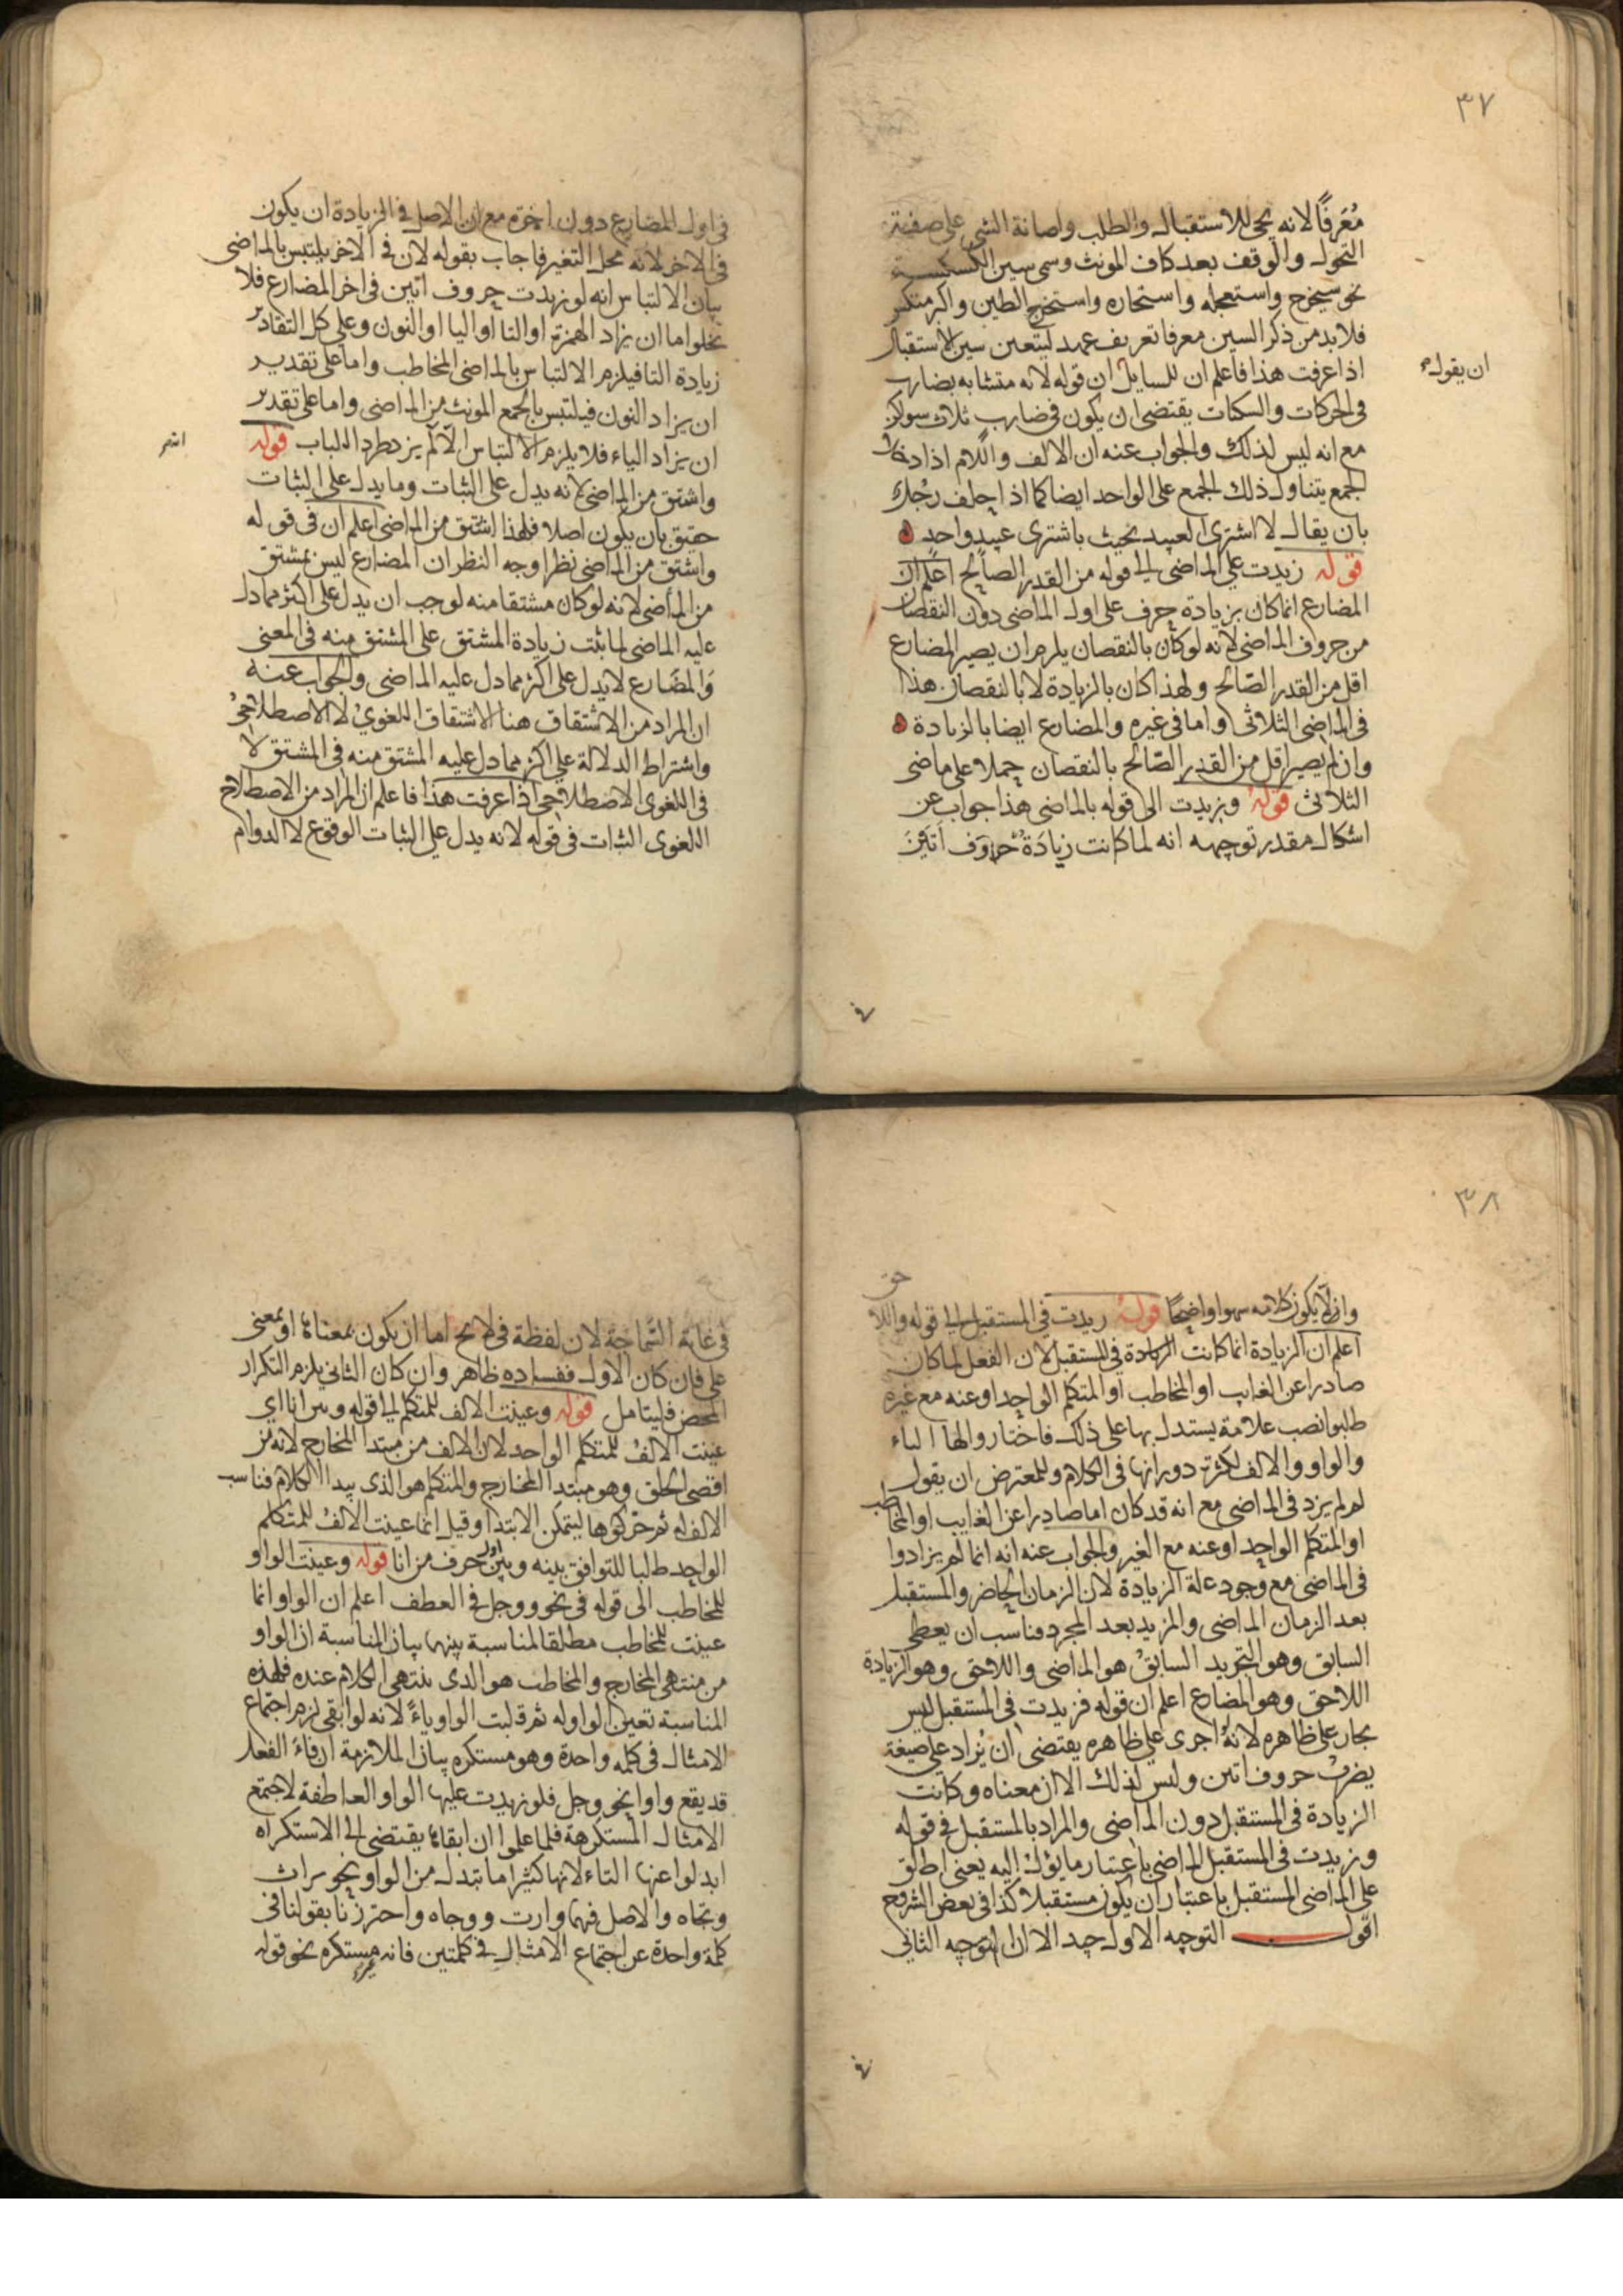 ٣٧
مُعَرفًا لانه يجئ للاستقبال والطلب واصابة الشئ على صفة
التحول والوقف بعد كاف المونث وسمى سين الكسكسة
نحو سيخرج واستعجله واستحاره واستخرج الطين واكرمتكس
فلابد من ذكر السين معرفا تعريف عهد ليتعين سين الاستقبال
اذا عرفت هذا فاعلم ان للسايل ان قوله لانه متشابه بضارب
ان يقول
فى الحركات والسكنات يقتضى ان يكون فى ضارب ثلاث سواكن
مع انه ليس لذلك والجواب عنه ان الالف واللام اذا دخل
الجمع يتناول ذلك الجمع على الواحد ايضا كما اذا حلف رجل
بان يقال لا اشترى العبيد يحنث باشترى عبيد واحد ه
قوله زيدت على الماضى الى قوله من القدر الصالح اعلم ان
المضارع انما كان بزيادة حرف على اول الماضى دون النقصان
من حروف الماضى لانه لو كان بالنقصان يلزم ان يصير المضارع
اقل من القدر الصالح ولهذا كان بالزيادة لا بالنقصان هذا
فى الماضى الثلاثى واما فى غيره والمضارع ايضا بالزيادة ه
وان لم يصير اقل من القدر الصالح بالنقصان حملا على ماضى
الثلاثى قوله وزيدت الى قوله بالماضى هذا جواب عن
اشكال مقدر توجيهه انه لما كانت زيادة حروف اتين
فى اول المضارع دون اخره مع ان الاصل فى الزيادة ان يكون
فى الاخر لانه محل التغير فاجاب بقوله لان فى الاخر يلتبس بالماضى
بيان الالتباس انه لو زيدت حروف اتين فى اخر المضارع فلا
يخلوا اما ان يزاد الهمزة او التا او اليا او النون وعلى كل التقادير
زيادة التا فيلزم الالتباس بالماضى المخاطب واما على تقدير
ان يزاد النون فيلتبس بالجمع المونث من الماضى واما على تقدير
ان يزاد الياء فلا يلزم الالتباس الا لم يزد طردا للباب قوله
واشتق من الماضى لانه يدل على الثبات وما يدل على الثبات
حقيق بان يكون اصلا فلهذا اشتق من الماضى اعلم ان فى قوله
واشتق من الماضى نظرا وجه النظر ان المضارع ليس بمشتق
من الماضى لانه لو كان مشتقا منه لوجب ان يدل على اكثر مما دل
عليه الماضى لما ثبت زيادة المشتق على المشتق منه فى المعنى
والمضارع لا يدل على اكثر مما دل عليه الماضى والجواب عنه
ان المراد من الاشتقاق هنا الاشتقاق اللغوى لا الاصطلاحى
واشتراط الدلالة على اكثر مما دل عليه المشتق منه فى المشتق لا
فى اللغوى الاصطلاحى اذا عرفت هذا فاعلم ان المراد من الاصطلاح
اللغوى الثبات فى قوله لانه يدل على الثبات الوقوع لا الدوام
٣٨
وان لا يكون كلامه سهوا واضحا قوله زيدت فى المستقبل الى قوله واللا
حق
اعلم ان الزيادة انما كانت الزيادة فى المستقبل لان الفعل لما كان
صادرا عن الغايب او المخاطب او المتكلم الواحد او عنه مع غيره
طلبوا نصب علامة يستدل بها على ذلك فاختاروا لها الياء
والواو والالف لكثرة دورانها فى الكلام وللمعترض ان يقول
لم لم يزد فى الماضى مع انه قد كان اما صادرا عن الغايب او المخاطب
او المتكلم الواحد او عنه مع الغير والجواب عنه انه انما لم يزادوا
فى الماضى مع وجود علة الزيادة لان الزمان الحاضر والمستقبل
بعد الزمان الماضى والمزيد بعد المجرد فناسب ان يعطى
السابق وهو التجريد السابق هو الماضى واللاحق وهو الزيادة
اللاحق وهو المضارع اعلم ان قوله فزيدت فى المستقبل ليس
بجار على ظاهره لانه اجرى على ظاهره يقتضى ان يزاد على صيغة
يضرب حروف اتين وليس لذلك الا ان معناه وكانت
الزيادة فى المستقبل دون الماضى والمراد بالمستقبل فى قوله
وزيدت فى المستقبل الماضى باعتبار ما يؤل اليه يعنى اطلق
على الماضى المستقبل باعتبار ان يكون مستقبلا كذا فى بعض الشروح
اقول التوجيه الاول جيد الا ان التوجيه الثانى
فى غاية السماجة لان لفظة فى لا يخ اما ان يكون بمعناها او بمعنى
على فان كان الاول ففساده ظاهر وان كان الثانى يلزم التكرار
المحض فليتامل قوله وعينت الالف للمتكلم الى قوله وبين انا اى
عينت الالف للمتكلم الواحد لان الالف من مبتدا المخارج لانه من
اقصى الحلق وهو مبتدا المخارج والمتكلم هو الذى يبدا الكلام فناسب
الالف له ثم حركوها ليتمكن الابتدا وقيل انما عينت الالف للمتكلم
الواحد طلبا للتوافق بينه وبين اول حرف من انا قوله وعينت الواو
للمخاطب الى قوله فى نحو ووجل فى العطف اعلم ان الواو انما
عينت للمخاطب مطلقا لمناسبة بينهما بيان المناسبة ان الواو
من منتهى المخارج والمخاطب هو الذى ينتهى الكلام عنده فلهذه
المناسبة تعين الواو له ثم قلبت الواو ياءً لانه لو ابقى لزم اجتماع
الامثال فى كلمة واحدة وهو مستكره بيان الملازمة ان فاء الفعل
قد يقع واوا نحو وجل فلو زيدت عليها الواو العاطفة لاجتمع
الامثال المستكرهة فلما علموا ان ابقاها يقتضى الى الاستكراه
ابدلوا عنها التاء لانها كثيرا ما تبدل من الواو نحو تراث
وتجاه والاصل فيهما وارث ووجاه واحترزنا بقولنا فى
كلمة واحدة عن اجتماع الامثال فى كلمتين فانه غير مستكره نحو قوله